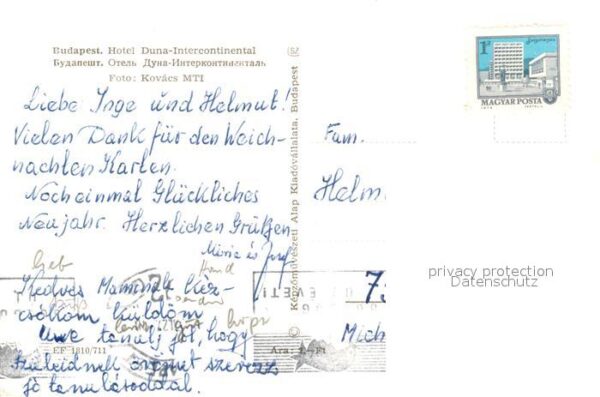 Budapest. Hotel Duna-Intercontinental
Будапешт. Отель Дуна-Интерконтиненталь
Foto: Kovács MTI
Liebe Inge und Helmut!
Vielen Dank für den Weich-
nachten Karten.
Noch einmal Glückliches
Neujahr. Herzlichen Grützen
Mária és Josef
Kedves
küldöm
Uwe tanulj jól, hogy
szüleidnek örömet szerezz
jó tanulásoddal.
EF 1810/711
Képzőművészeti Alap Kiadóvállalata, Budapest
1Ft
MAGYAR POSTA
Fam.
Helm
7
Mich
privacy protection
Datenschutz